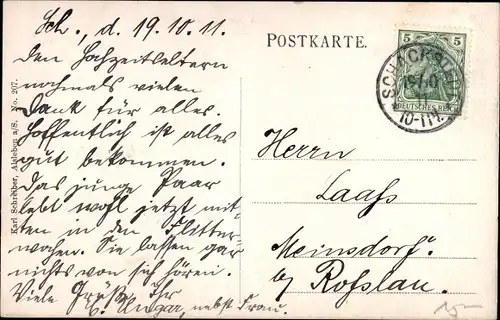 Sch., d. 19.10.11.
Den Hochzeitseltern
nochmals vielen
Dank für alles.
Hoffentlich ist alles
gut bekommen.
Das junge Paar
lebt wohl jetzt mit-
ten in den Flitter-
wochen. Sie lassen gar
nichts von sich hören.
Viele Grüße, Ihr
Unger, nebst Frau.
Karl Schreiber, Alsleben a/S. No. 207.
POSTKARTE.
5 5
DEUTSCHES REICH
10-11V.
Herrn
Laaß
Meinsdorf
b/ Roßlau.